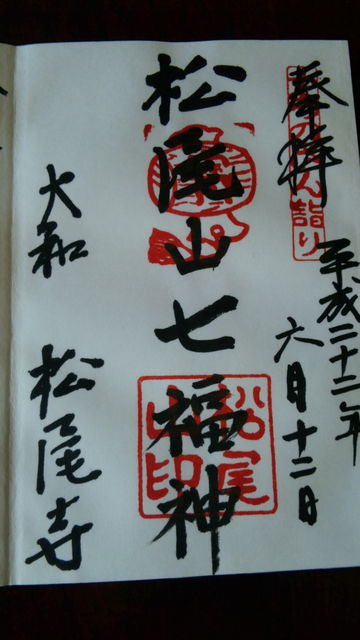 奉拝
平成二十二年
六月十二日
松尾山七福神
松尾山印
大和
松尾寺